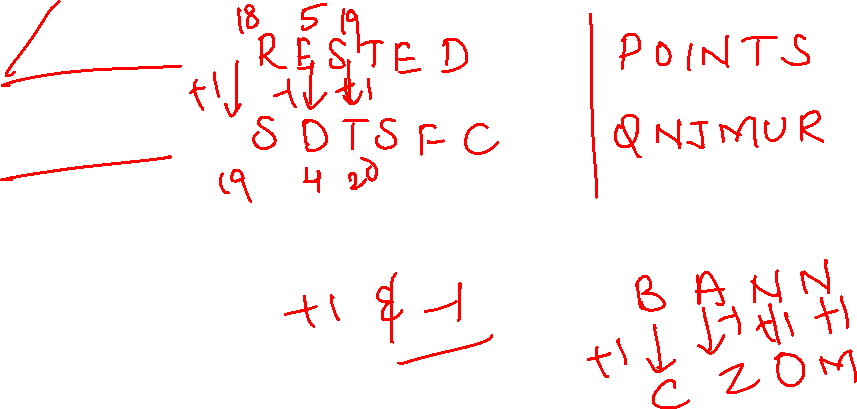 18 5 19
R E S T E D
+1 -1 +1
S D T S F C
19 4 20
P O I N T S
Q N J M U R
+1 & -1
B A N N
+1 -1 +1 +1
C Z O M